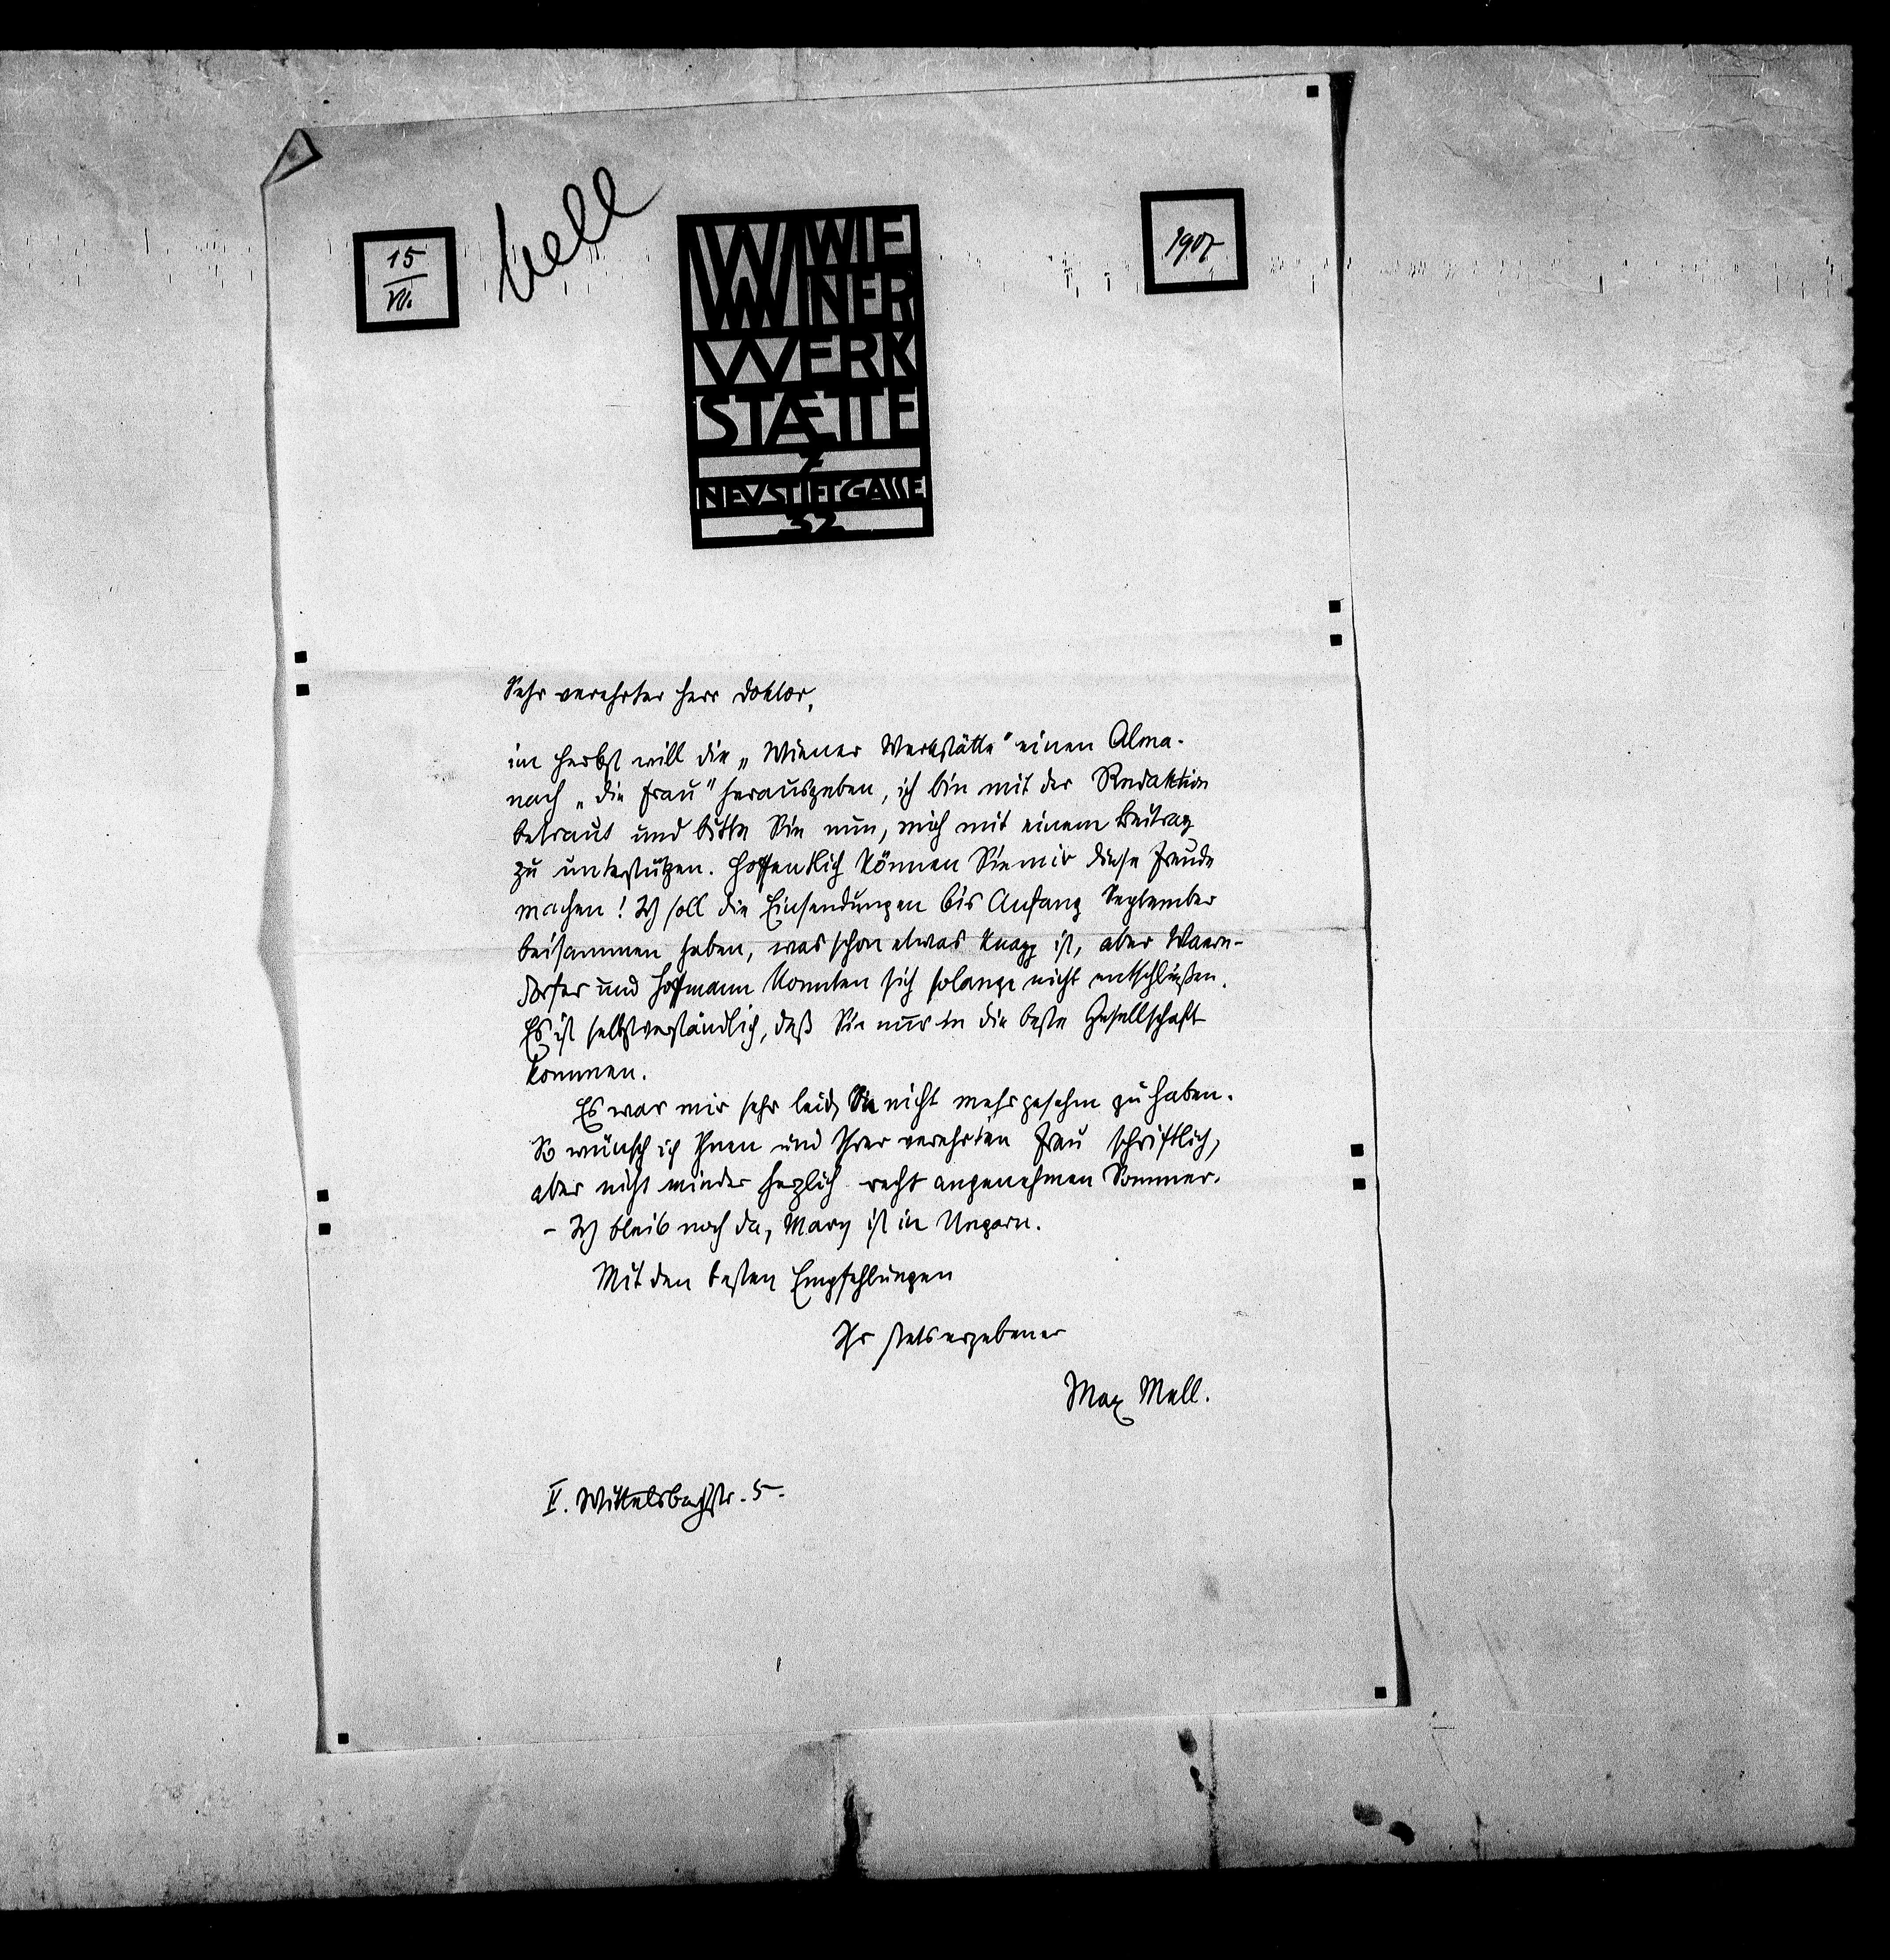 15
VII.
Mell
1907
WW WIE
NER
WERK
STÆTTE
7
NEVSTIFTGASSE
32
Sehr verehrter Herr Doktor,
im Herbst will die „Wiener Werkstätte" einen Alma-
nach „die Frau" herausgeben, ich bin mit der Redaktion
betraut und bitte Sie nun, mich mit einem Beitrag
zu unterstützen. Hoffentlich können Sie mir diese Freude
machen! Ich soll die Einsendungen bis Anfang September
beisammen haben, was schon etwas knapp ist, aber Waern-
dorfer und Hoffmann konnten sich solange nicht entschließen.
Es ist selbstverständlich, daß Sie nur in die beste Gesellschaft
kommen.
Es war mir sehr leid, Sie nicht mehr gesehn zu haben.
So wünsch ich Ihnen und Ihrer verehrten Frau schriftlich,
aber nicht minder herzlich recht angenehmen Sommer.
– Ich bleib noch da, Mary ist in Ungarn.
Mit den besten Empfehlungen
Ihr stets ergebener
Max Mell.
II. Wittelsbachstr. 5.